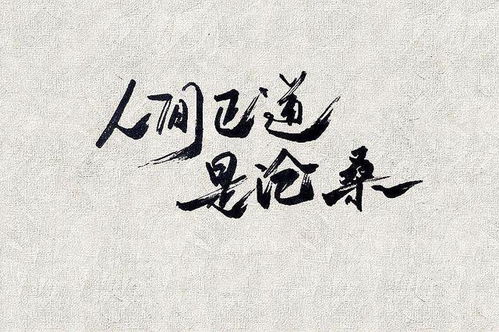 人间已道
是沧桑